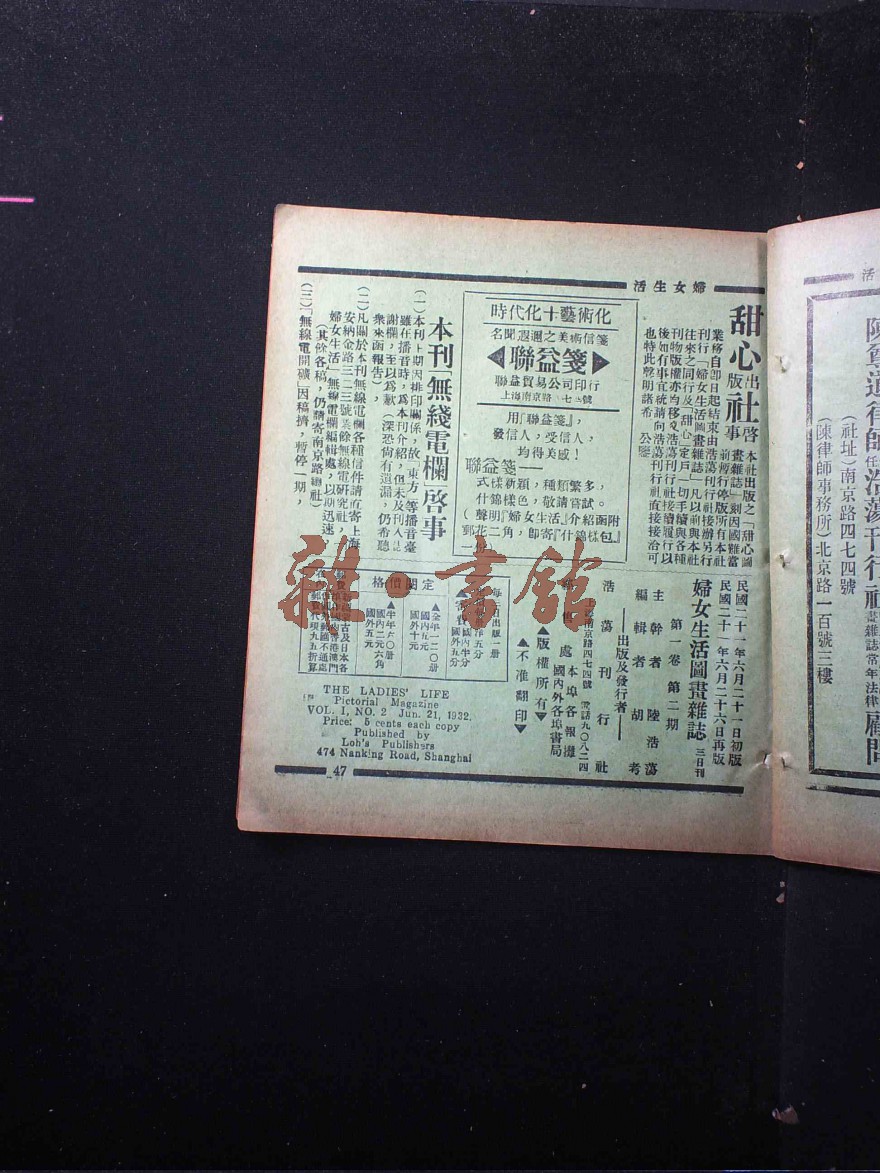 婦女生活
甜心出版社啓事
本社出版之「甜心圖
畫雜誌」刻因國難當
前暫行停版所有本社
業務自即日起結束由浩蕩刊行社接辦另行
刊行「婦女生活圖畫雜誌」凡以前與本社
往來之同行及「甜心」定戶一切手續與各種
刊物版權亦均移交浩蕩刊行社接續履行以
後如有事宜統請向浩蕩刊行社直接接洽可
也特此聲明諸希 公鑒
時代化十藝術化
名聞遐邇之美術信箋
聯益箋
聯益貿易公司印行
用『聯益箋』，
發信人，受信人，
均得美感！
聯益箋——
式樣新穎，種類繁多，
什錦樣色，敬請嘗試。
（聲明『婦女生活』介紹函附
郵花二角，即寄『什錦樣包』
本刊「無綫電欄」啓事
（一）本刊上期因排印關係，故東方等播音臺
雖在播音時，爲本刊介紹，但未及刊入誌
謝欄，至以爲歉（深恐尚有遺漏，仍希聽
衆來函報告），
（二）凡關於本刊無線電欄各種信件請直寄上海
安納金路三二三號業餘無線電研究社，
婦女生活」無線電欄編輯處，以期迅速，
（其餘各稿，仍請寄南京路總社）
（三）「無線電開礦」因稿擠，暫停一期，
民國二十一年六月二十一日初版
民國二十一年六月二十六日再版
婦女生活圖畫雜誌 三日刊
第一卷第二期
主幹者 陸浩蕩
編輯者 胡考
——出版及發行者——
浩蕩刊行社
上海南京路四七四號 電話九〇八二四
本埠各報攤
國內外各埠書局
▲版權所有▼
▲不准翻印▼
定閱價格
▲全年一二〇册
國內五元
國外十元
▲半年六〇册
國內二元六角
國外五元
THE LADIES' LIFE
Pictorial Magazine
VOL. I, NO. 2 Jun. 21, 1932.
Price: 5 cents each copy
Published by
Loh's Publishers
474 Nanking Road, Shanghai
47
活
陳
道律師
任浩蕩刊行社
畫雜誌常年法律
顧問
（社址）南京路四七四號
（陳律師事務所）北京路一百號三樓
雜·書館